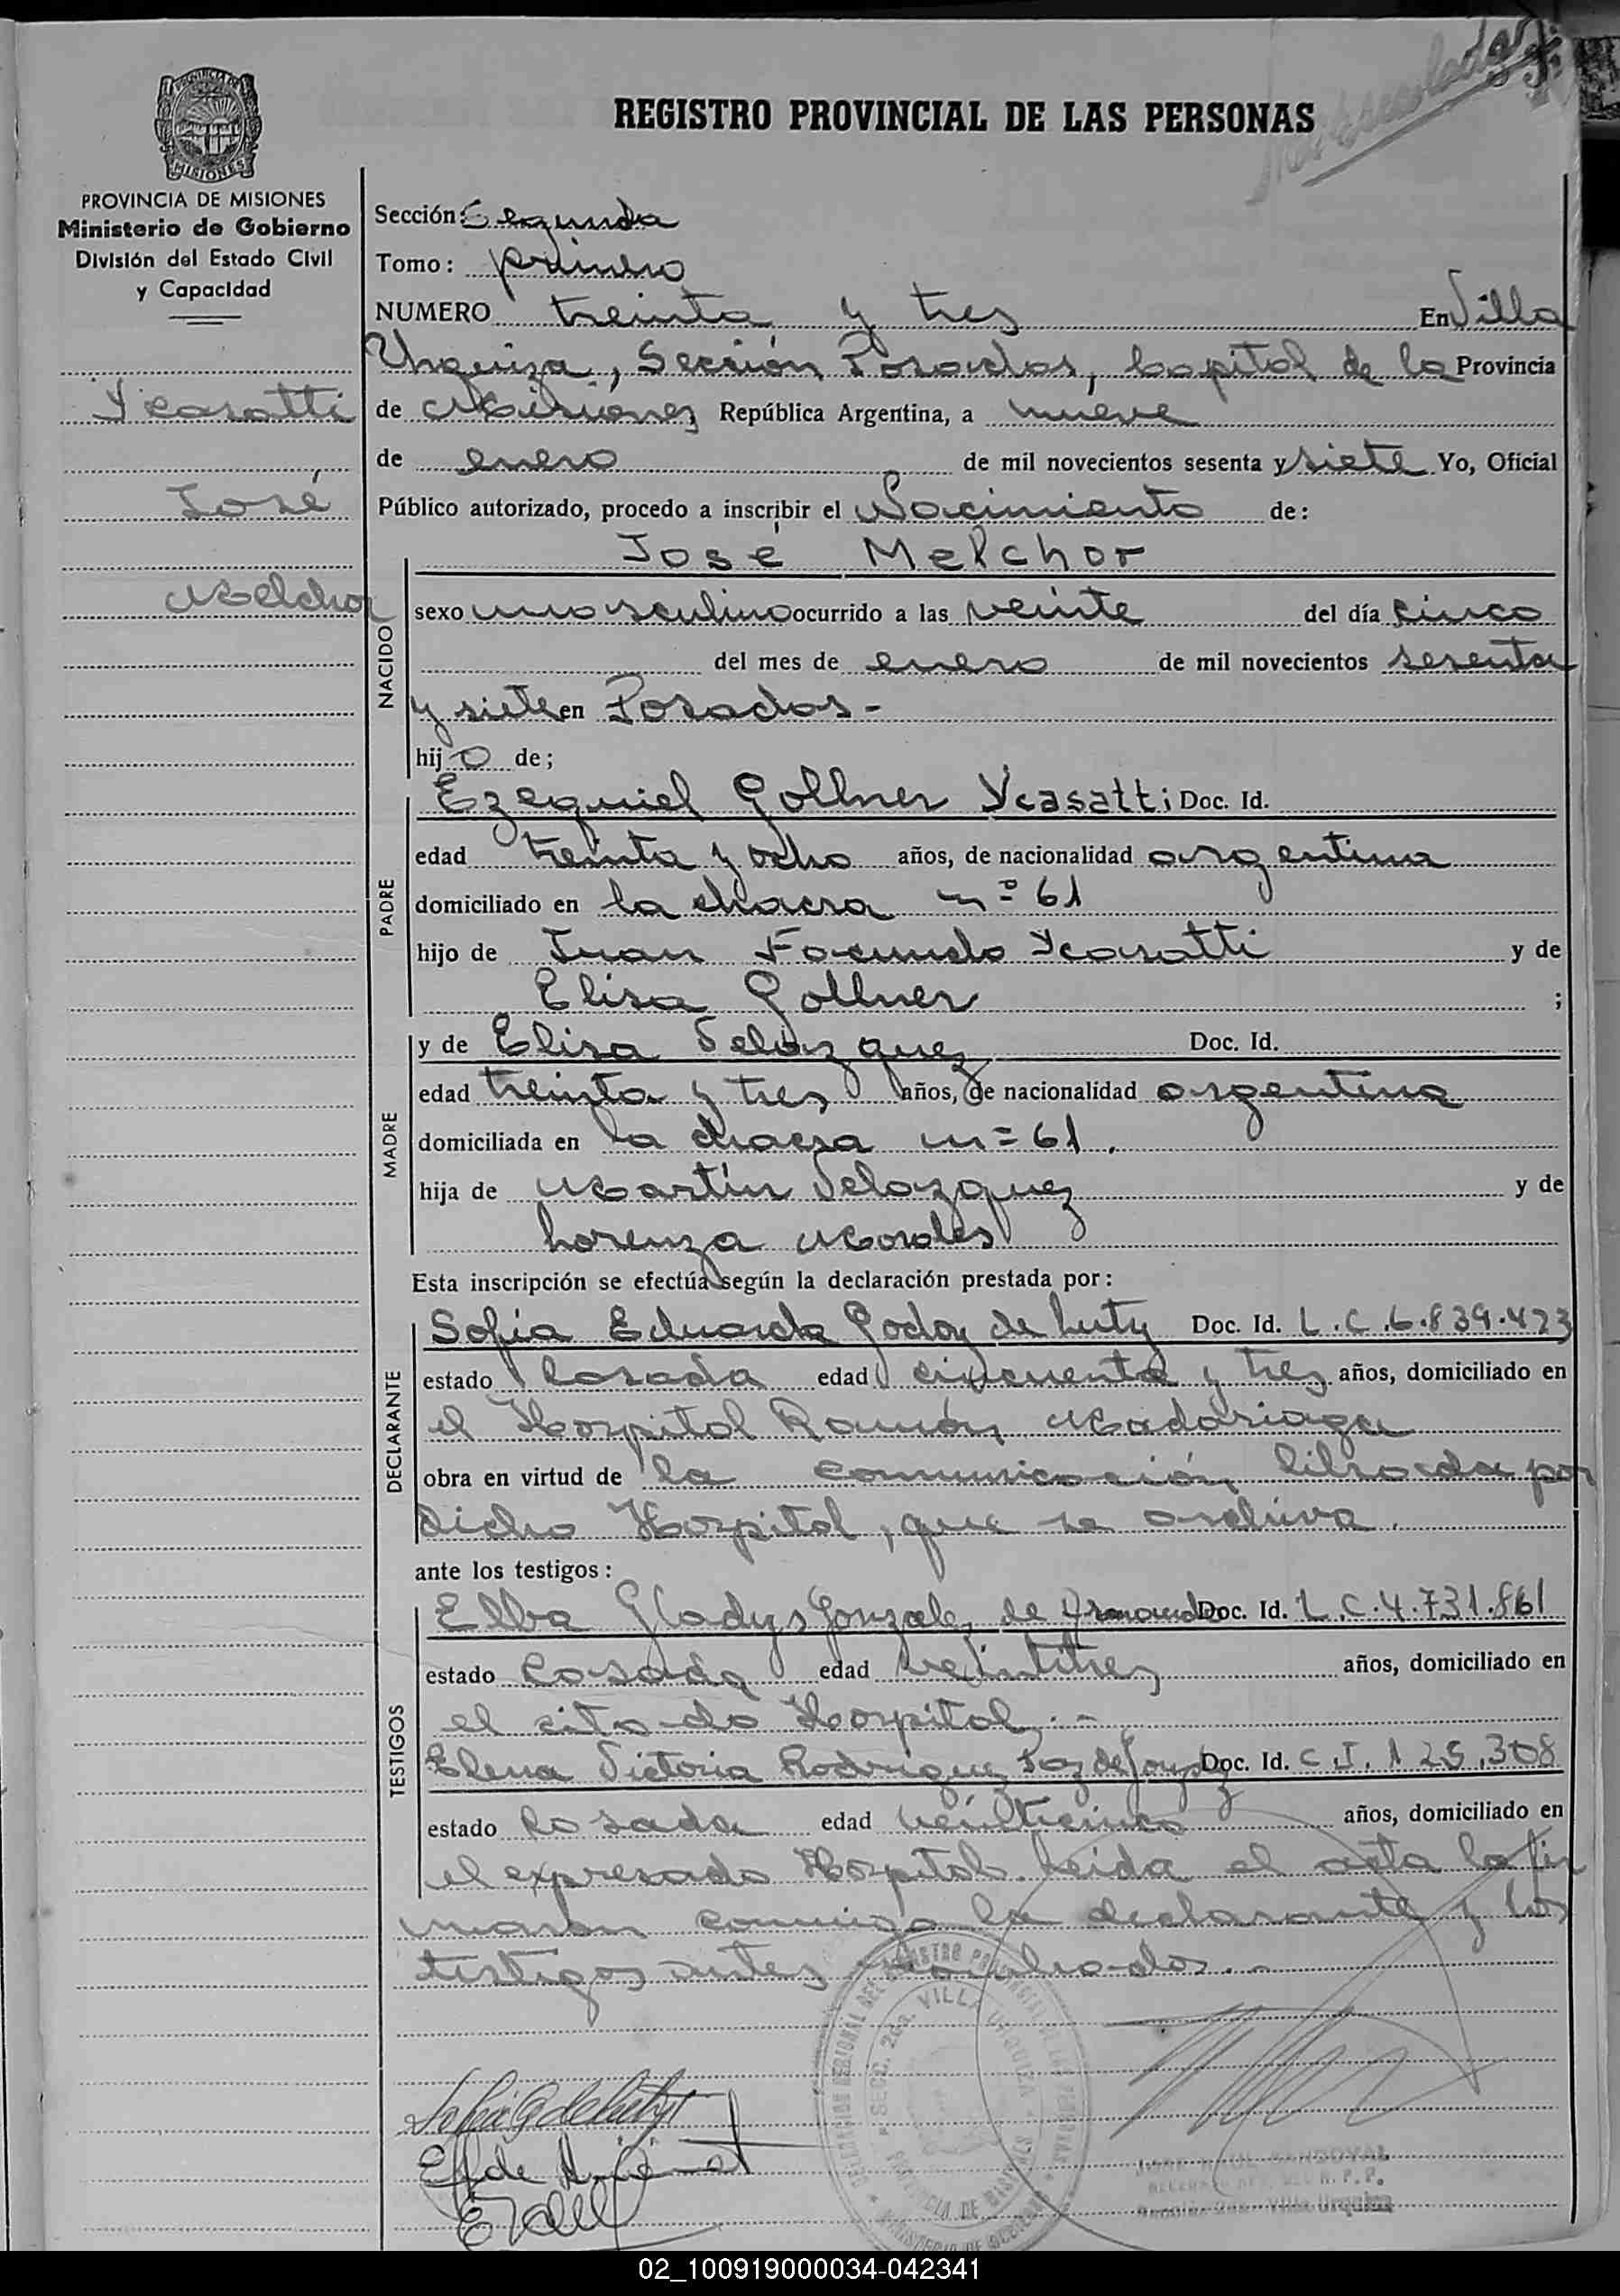 REGISTRO PROVINCIAL DE LAS PERSONAS
MISIONES
PROVINCIA DE MISIONES
Ministerio de Gobierno
División del Estado Civil
y Capacidad
Ycasatti
José
Melchor
Sección: Segunda
Tomo: primero
NUMERO treinta y tres En Villa
Urquiza, Sección Posadas, Capital de la Provincia
de Misiones República Argentina, a nueve
de enero de mil novecientos sesenta y siete Yo, Oficial
Público autorizado, procedo a inscribir el Nacimiento de:
José Melchor
NACIDO
sexo masculino ocurrido a las veinte del día cinco
del mes de enero de mil novecientos sesenta
y siete en Posadas -
hijo de;
PADRE
Ezequiel Gollner Ycasatti Doc. Id.
edad treinta y ocho años, de nacionalidad argentina
domiciliado en la chacra nº 61
hijo de Juan Facundo Ycasatti y de
Elisa Gollner ;
MADRE
y de Elisa Velazquez Doc. Id.
edad treinta y tres años, de nacionalidad argentina
domiciliada en la chacra n= 61.
hija de Martín Velazquez y de
Lorenza Morales
Esta inscripción se efectúa según la declaración prestada por:
DECLARANTE
Sofia Eduarda Godoy de Luty Doc. Id. L.C.6.839.423
estado Casada edad cincuenta y tres años, domiciliado en
el Hospital Ramón Madariaga
obra en virtud de la comunicación librada por
dicho Hospital, que se archiva.
ante los testigos:
TESTIGOS
Elba Gladys Gonzalez de Doc. Id. L.C.4.731.861
estado Casada edad veintitres años, domiciliado en
el citado Hospital. -
Elena Victoria Rodriguez Doc. Id. C.I. 125.308
estado Casada edad veinticinco años, domiciliado en
el expresado Hospital. Leida el acta la fir
maron conmigo la declarante y los
testigos antes nombrados. -
DELEGACION REGIONAL DEL REGISTRO PROVINCIAL DE LAS PERSONAS
SECC. 2da. VILLA URQUIZA
PROVINCIA DE MISIONES
MINISTERIO DE GOBIERNO
SANDOVAL
R.P.P.
Villa Urquiza
02_100919000034-042341